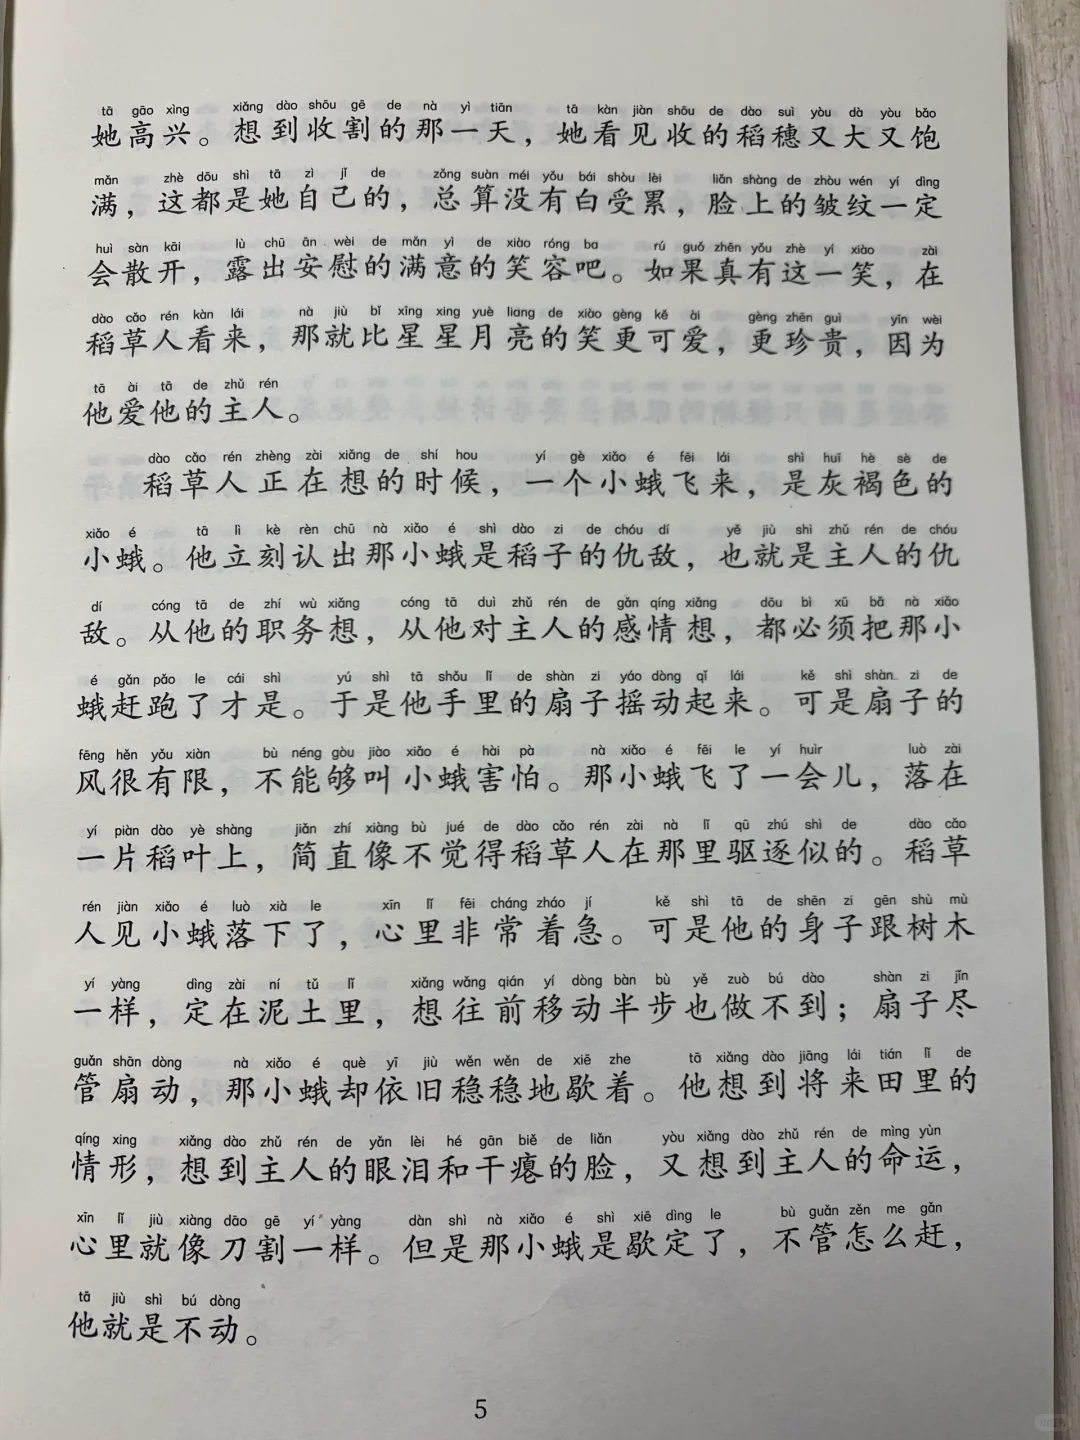 tā gāo xìng xiǎng dào shōu gē de nà yì tiān tā kàn jiàn shōu de dào suì yòu dà yòu bǎo
她高兴。想到收割的那一天，她看见收的稻穗又大又饱
mǎn zhè dōu shì tā zì jǐ de zǒng suàn méi yǒu bái shòu lèi liǎn shàng de zhòu wén yí dìng
满，这都是她自己的，总算没有白受累，脸上的皱纹一定
huì sàn kāi lù chū ān wèi de mǎn yì de xiào róng ba rú guǒ zhēn yǒu zhè yí xiào zài
会散开，露出安慰的满意的笑容吧。如果真有这一笑，在
dào cǎo rén kàn lái nà jiù bǐ xīng xing yuè liang de xiào gèng kě ài gèng zhēn guì yīn wèi
稻草人看来，那就比星星月亮的笑更可爱，更珍贵，因为
tā ài tā de zhǔ rén
他爱他的主人。
dào cǎo rén zhèng zài xiǎng de shí hou yí gè xiǎo é fēi lái shì huī hè sè de
稻草人正在想的时候，一个小蛾飞来，是灰褐色的
xiǎo é tā lì kè rèn chū nà xiǎo é shì dào zi de chóu dí yě jiù shì zhǔ rén de chóu
小蛾。他立刻认出那小蛾是稻子的仇敌，也就是主人的仇
dí cóng tā de zhí wù xiǎng cóng tā duì zhǔ rén de gǎn qíng xiǎng dōu bì xū bǎ nà xiǎo
敌。从他的职务想，从他对主人的感情想，都必须把那小
é gǎn pǎo le cái shì yú shì tā shǒu lǐ de shàn zi yáo dòng qǐ lái kě shì shàn zi de
蛾赶跑了才是。于是他手里的扇子摇动起来。可是扇子的
fēng hěn yǒu xiàn bù néng gòu jiào xiǎo é hài pà nà xiǎo é fēi le yí huìr luò zài
风很有限，不能够叫小蛾害怕。那小蛾飞了一会儿，落在
yí piàn dào yè shàng jiǎn zhí xiàng bù jué de dào cǎo rén zài nà lǐ qū zhú shì de dào cǎo
一片稻叶上，简直像不觉得稻草人在那里驱逐似的。稻草
rén jiàn xiǎo é luò xià le xīn lǐ fēi cháng zháo jí kě shì tā de shēn zi gēn shù mù
人见小蛾落下了，心里非常着急。可是他的身子跟树木
yí yàng dìng zài ní tǔ lǐ xiǎng wǎng qián yí dòng bàn bù yě zuò bú dào shàn zi jǐn
一样，定在泥土里，想往前移动半步也做不到；扇子尽
guǎn shān dòng nà xiǎo é què yī jiù wěn wěn de xiē zhe tā xiǎng dào jiāng lái tián lǐ de
管扇动，那小蛾却依旧稳稳地歇着。他想到将来田里的
qíng xing xiǎng dào zhǔ rén de yǎn lèi hé gān biě de liǎn yòu xiǎng dào zhǔ rén de mìng yùn
情形，想到主人的眼泪和干瘪的脸，又想到主人的命运，
xīn lǐ jiù xiàng dāo gē yí yàng dàn shì nà xiǎo é shì xiē dìng le bù guǎn zěn me gǎn
心里就像刀割一样。但是那小蛾是歇定了，不管怎么赶，
tā jiù shì bú dòng
他就是不动。
5